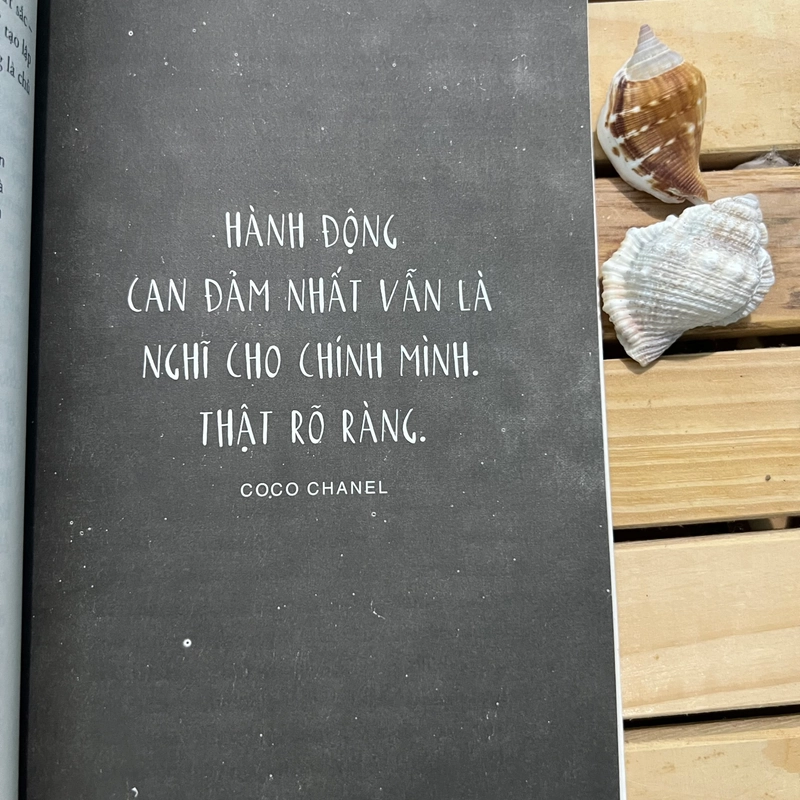 sắc –
tạo lập
là chủ
HÀNH ĐỘNG
CAN ĐẢM NHẤT VẪN LÀ
NGHĨ CHO CHÍNH MÌNH.
THẬT RÕ RÀNG.
COCO CHANEL